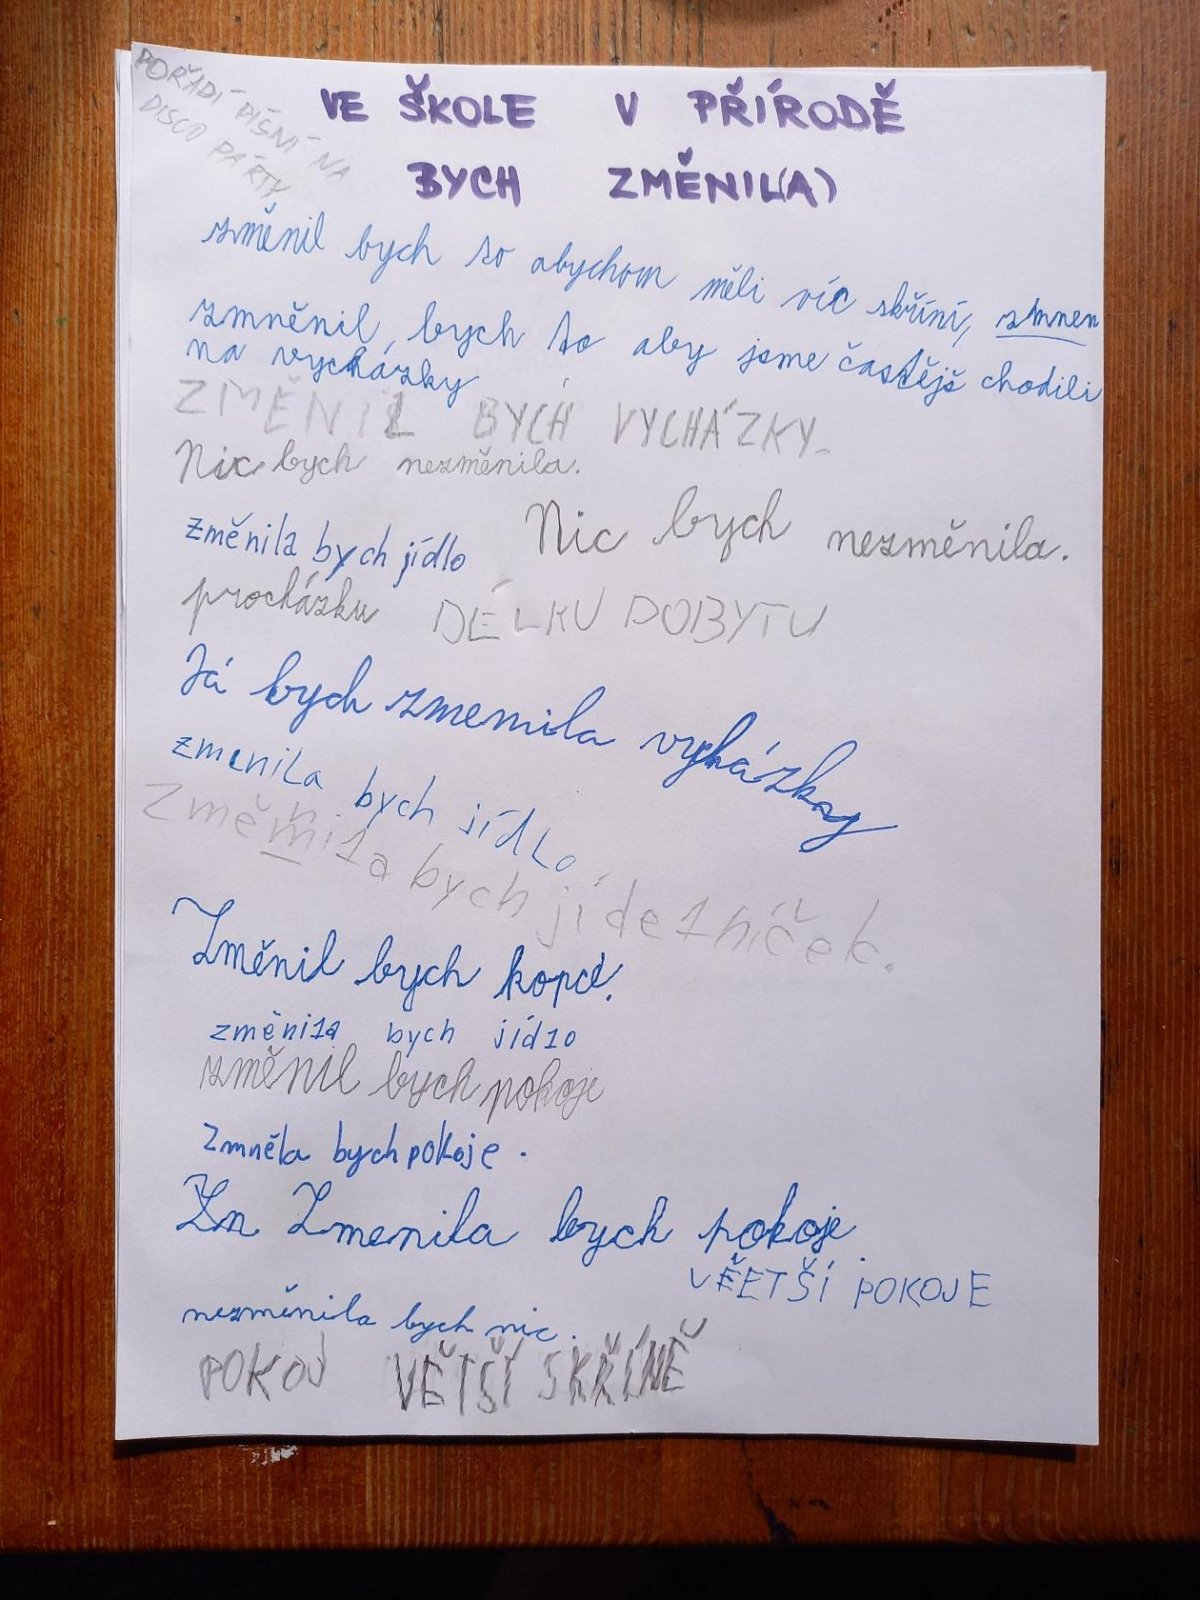 POŘADÍ PÍSNÍ NA
DISCO PÁRTY
VE ŠKOLE V PŘÍRODĚ
BYCH ZMĚNIL(A)
změnil bych to abychom měli víc skříní, zmnen
zmněnil bych to aby jsme častějš chodili
na vycházky
ZMĚNIL BYCH VYCHÁZKY.
Nic bych nezměnila.
Nic bych nezměnila.
změnila bych jídlo
procházku DÉLKU DOBYTU
Já bych zmemila vycházkay
zmenila bych jídlo
Změnila bych jídelníček.
Změnil bych kopcě.
změnila bych jídlo
změnil bych pokoje
Zmněla bych pokoje.
Zn Zmenila bych pokoje.
VĚETŠÍ POKOJE
nezměnila bych nic.
POKOJ VĚTŠÍ SKŘÍNĚ